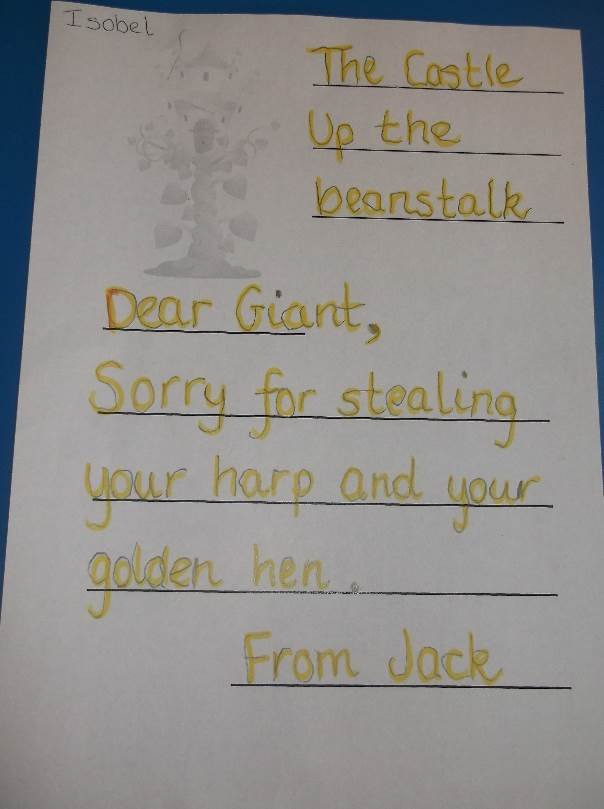 Isobel
The Castle
Up the
beanstalk
Dear Giant,
Sorry for stealing
your harp and your
golden hen.
From Jack